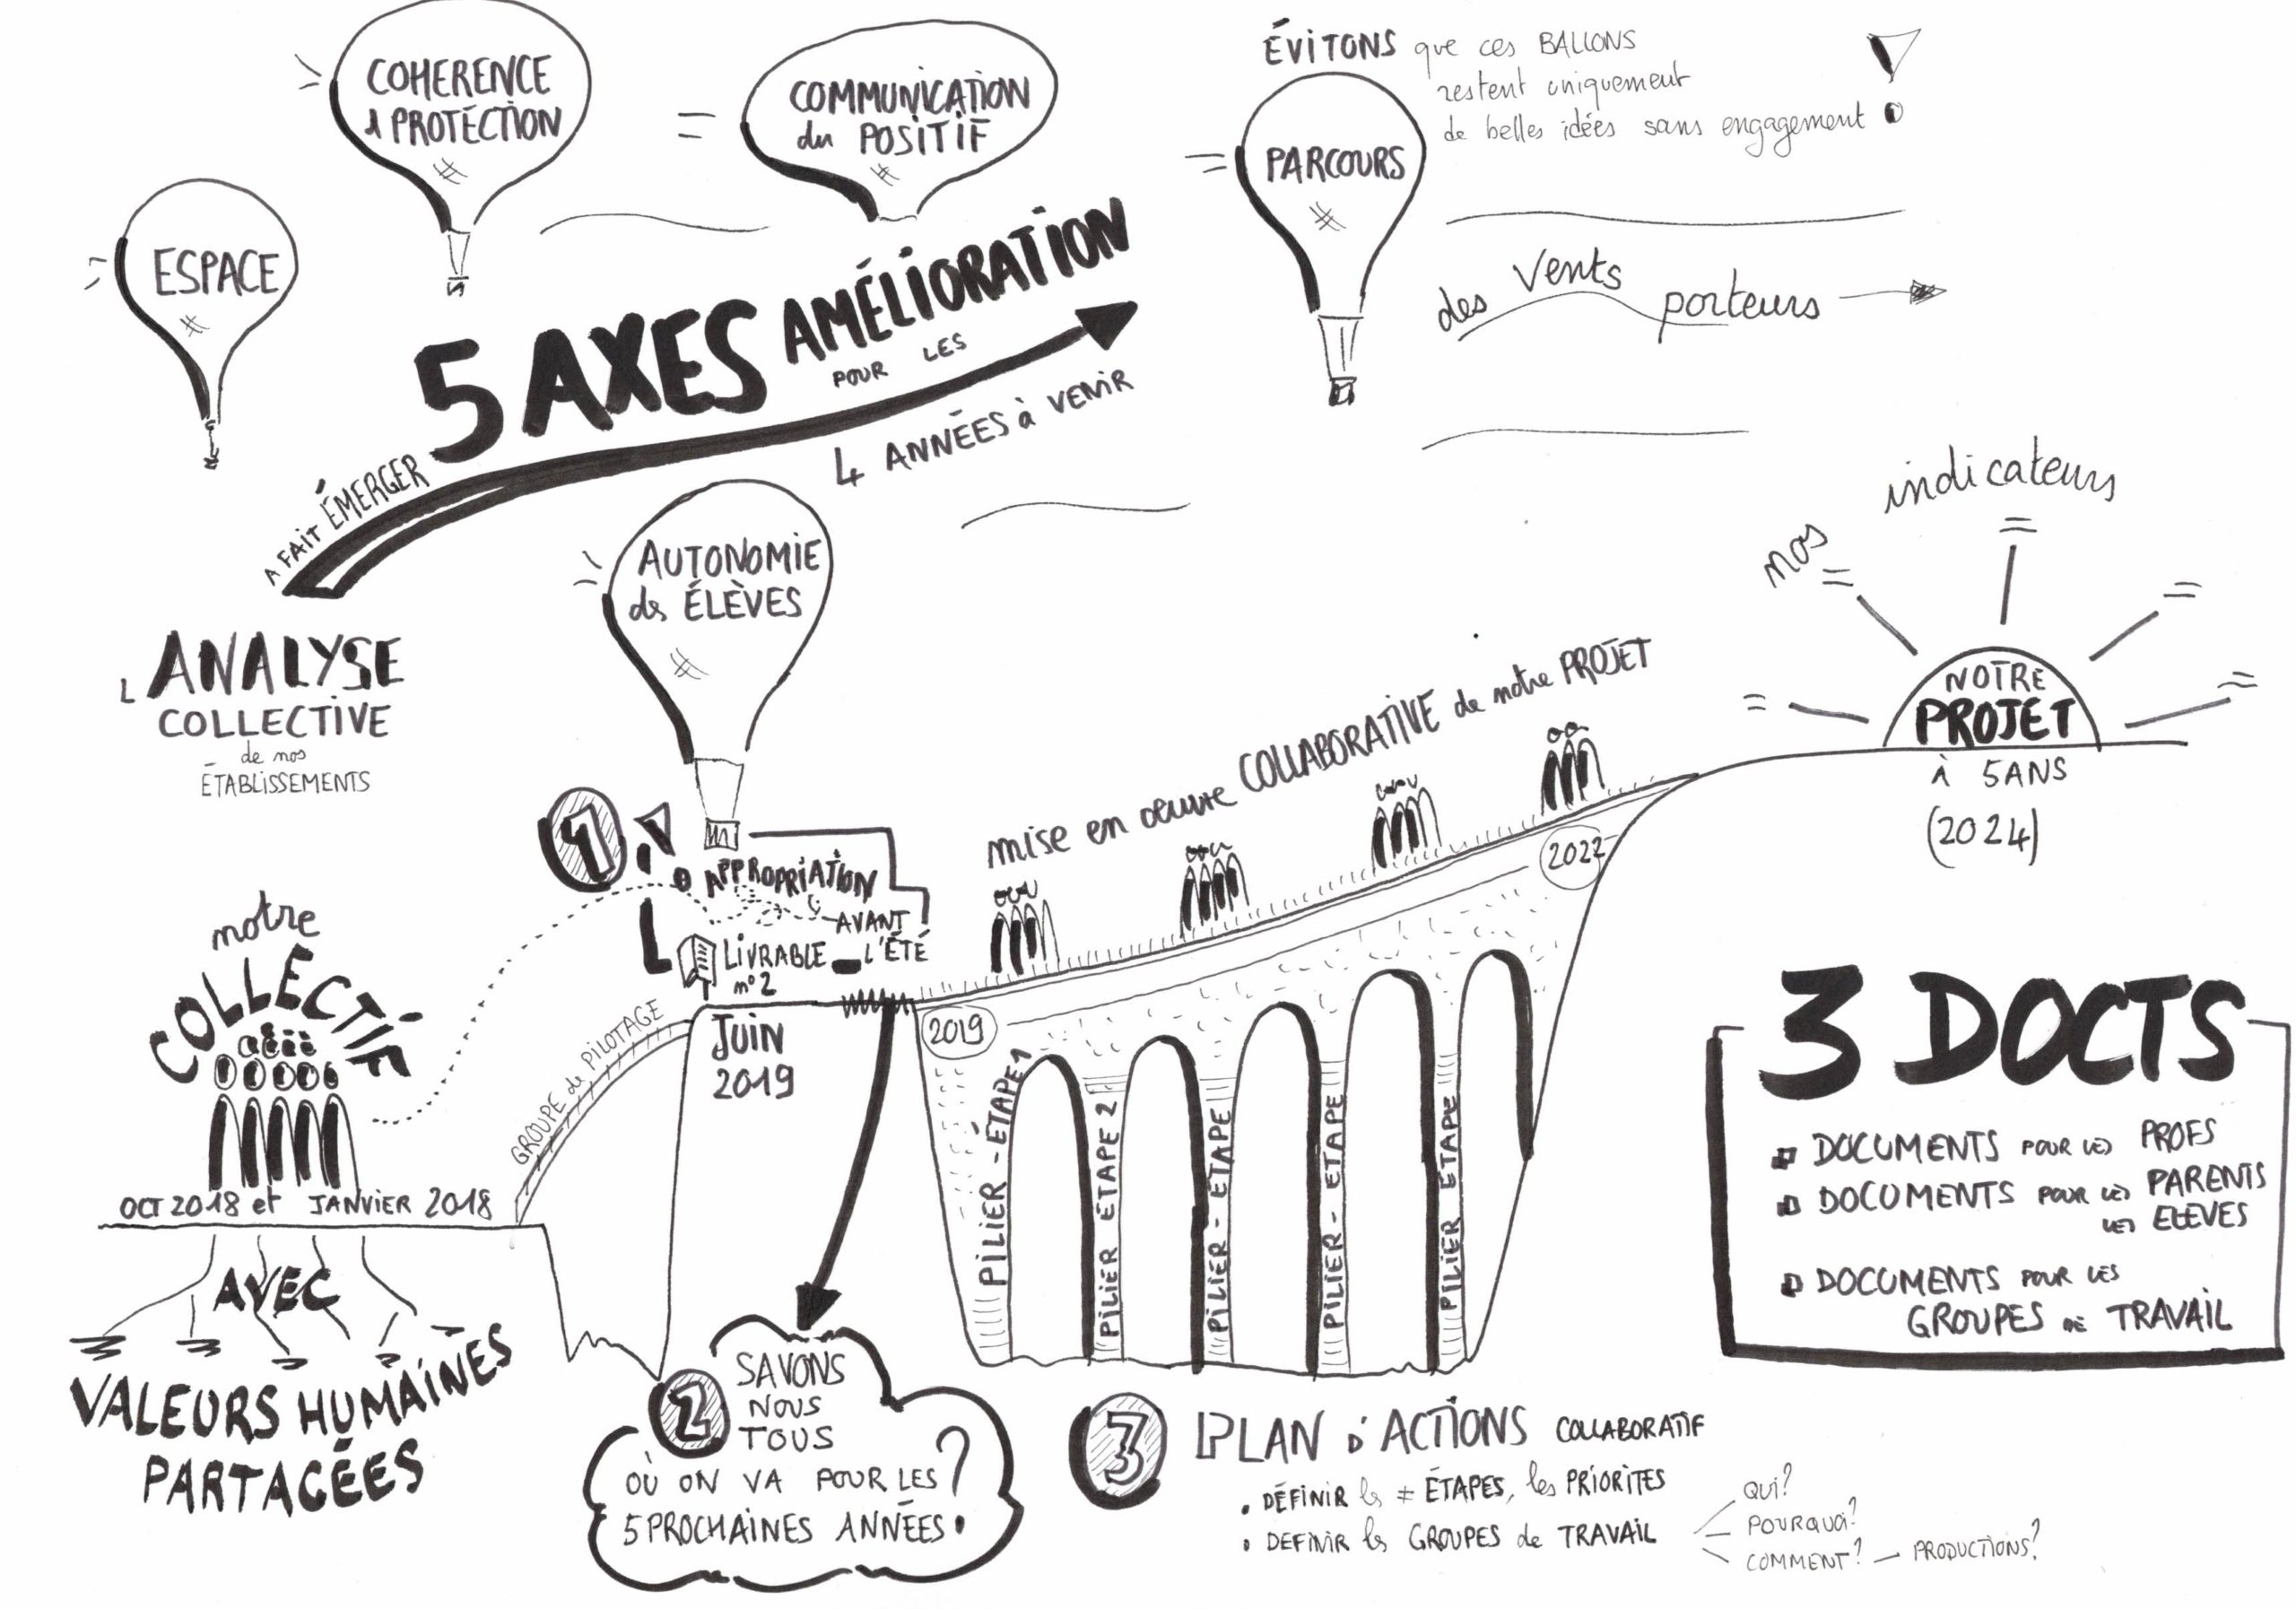 COHERENCE
& PROTECTION
COMMUNICATION
du POSITIF
ÉVITONS que ces BALLONS
restent uniquement
de belles idées sans engagement !
PARCOURS
ESPACE
des vents porteurs
5 AXES AMÉLIORATION
POUR LES
4 ANNÉES à VENIR
A FAIT ÉMERGER
L'ANALYSE
COLLECTIVE
de nos
ÉTABLISSEMENTS
AUTONOMIE
des ÉLÈVES
nos indicateurs
NOTRE
PROJET
À 5 ANS
(2024)
mise en oeuvre COLLABORATIVE de notre PROJET
1
APPROPRIATION
AVANT
L'ÉTÉ
LIVRABLE
n°2
notre
COLLECTIF
OCT 2018 et JANVIER 2018
AVEC
VALEURS HUMAINES
PARTAGÉES
GROUPE de PILOTAGE
JUIN
2019
2019
2022
PILIER - ÉTAPE 1
PILIER ETAPE 2
PILIER - ETAPE
PILIER - ETAPE
PILIER ETAPE
3 DOCTS
DOCUMENTS POUR LES PROFS
DOCUMENTS POUR LES PARENTS
LES ELEVES
DOCUMENTS POUR LES
GROUPES DE TRAVAIL
2
SAVONS
NOUS
TOUS
OÙ ON VA POUR LES
5 PROCHAINES ANNÉES ?
3
PLAN D'ACTIONS COLLABORATIF
• DÉFINIR les ≠ ÉTAPES, les PRIORITES
• DEFINIR les GROUPES de TRAVAIL
QUI?
POURQUOI?
COMMENT? — PRODUCTIONS?